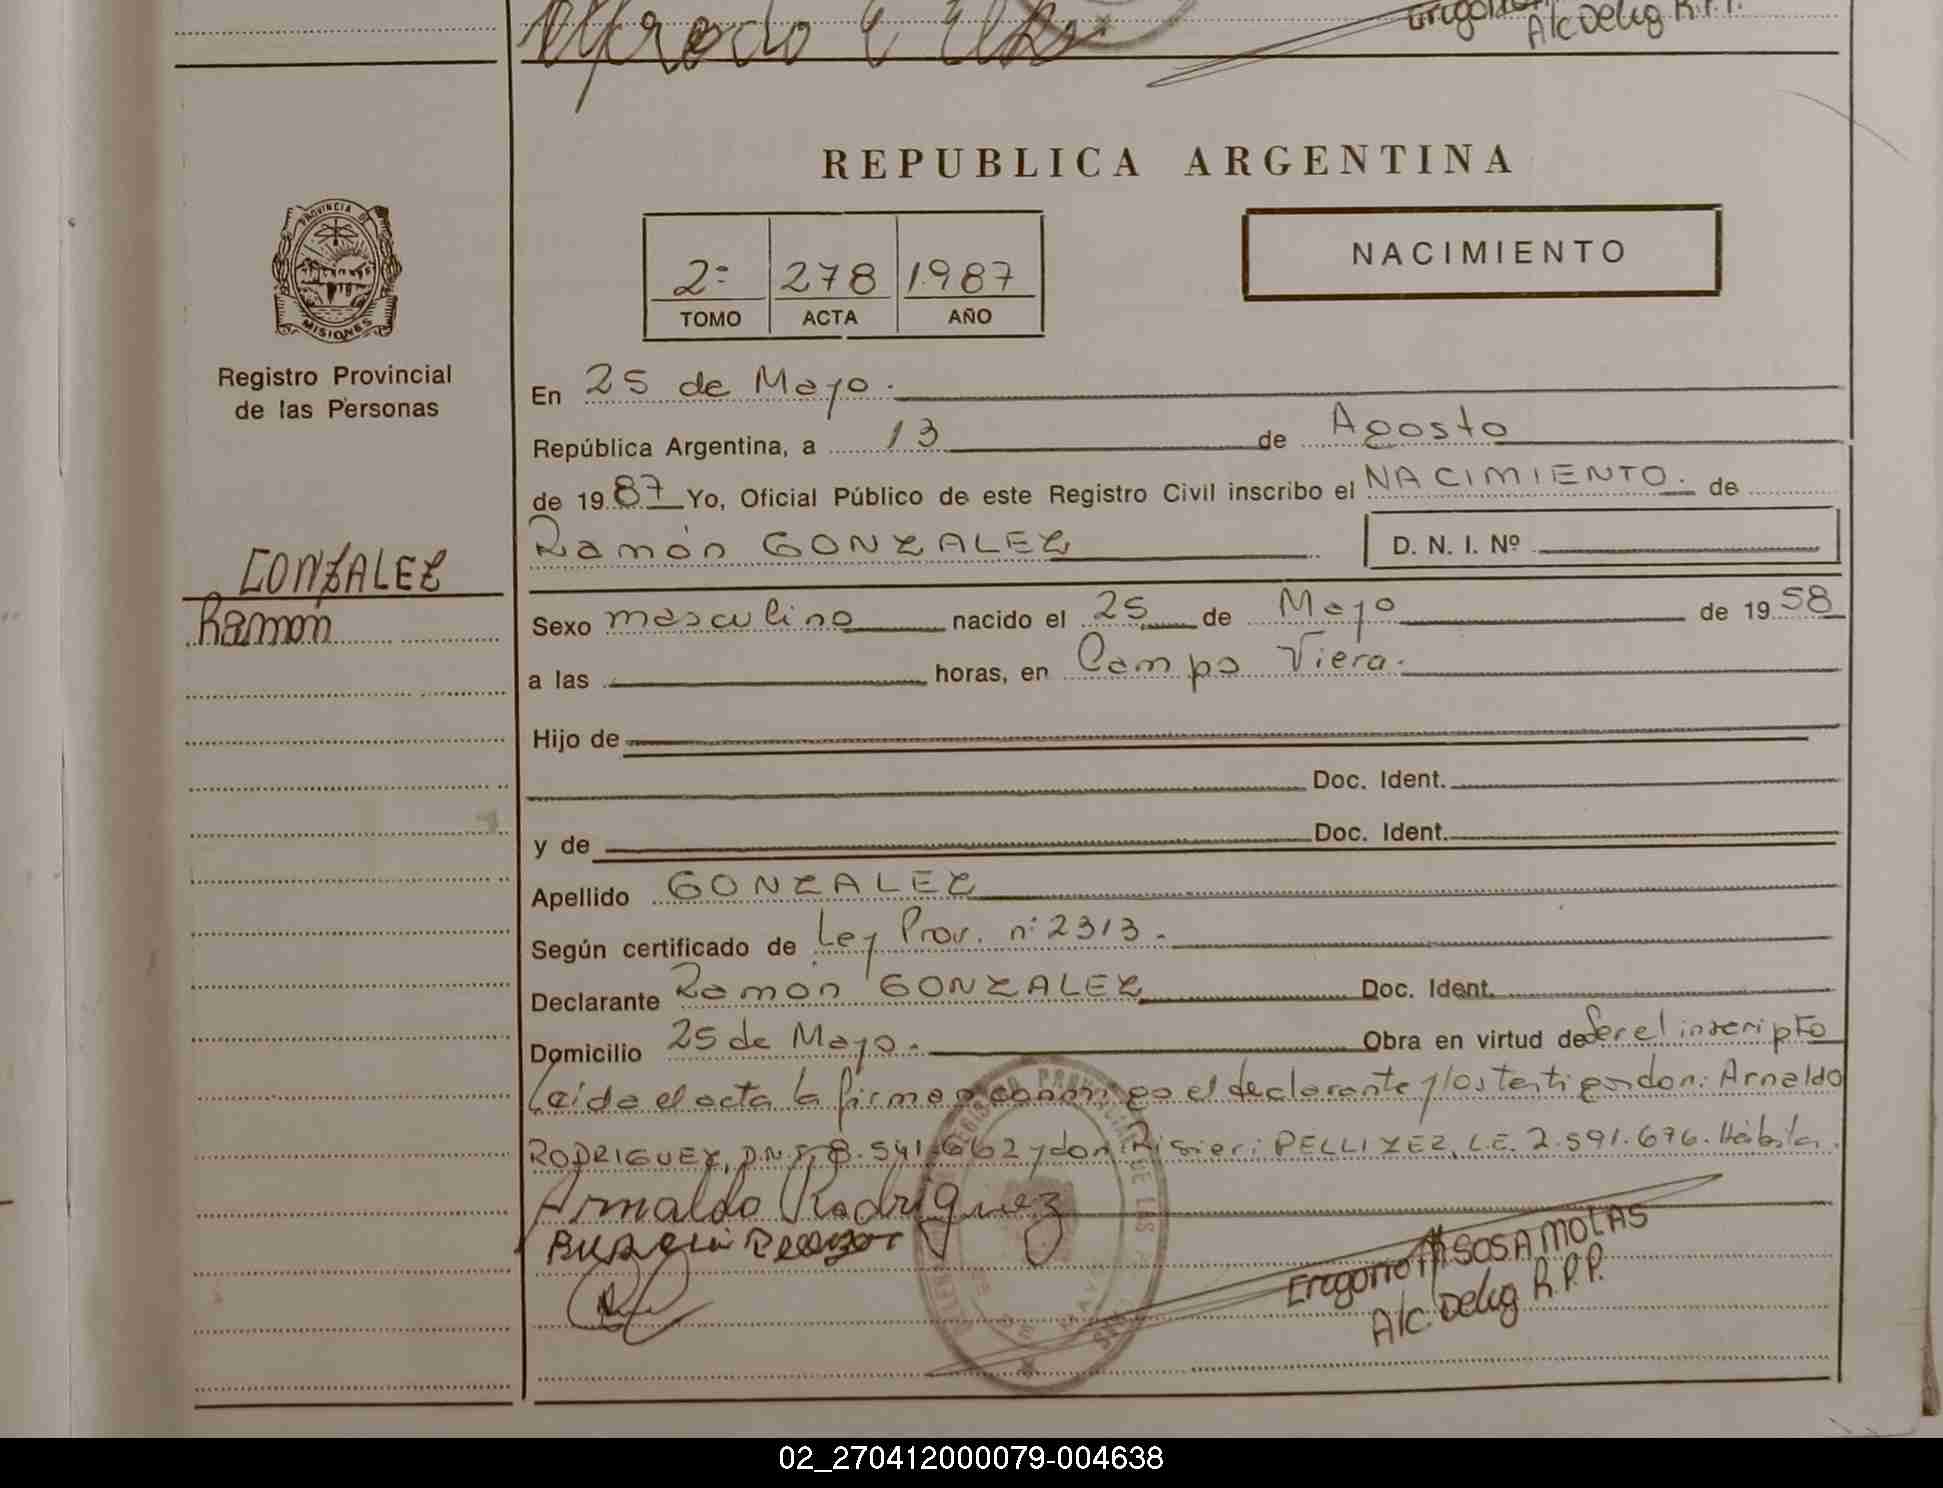 Alfredo
A/c Deleg R.P.P.
REPUBLICA ARGENTINA
NACIMIENTO
2º 278 1987
TOMO ACTA AÑO
PROVINCIA DE
MISIONES
Registro Provincial
de las Personas
GONZALEZ
Ramón
En 25 de Mayo.
República Argentina, a 13 de Agosto
de 1987 Yo, Oficial Público de este Registro Civil inscribo el NACIMIENTO. de
Ramón GONZALEZ D. N. I. Nº
Sexo masculino nacido el 25 de Mayo de 1958
a las horas, en Campo Viera.
Hijo de
Doc. Ident.
y de Doc. Ident.
Apellido GONZALEZ
Según certificado de Ley Prov. nº 2313.
Declarante Ramón GONZALEZ Doc. Ident.
Domicilio 25 de Mayo. Obra en virtud de Ser el inscripto
Leida el acta la firman conmigo el declarante y los testigos don: Arnaldo
RODRIGUEZ, D.N.I. 8.541.662 y don Risieri PELLIZEZ, L.E. 2.591.676. Hábita.
Arnaldo Rodríguez
SOSA MOLAS
A/c Deleg R.P.P.
02_270412000079-004638